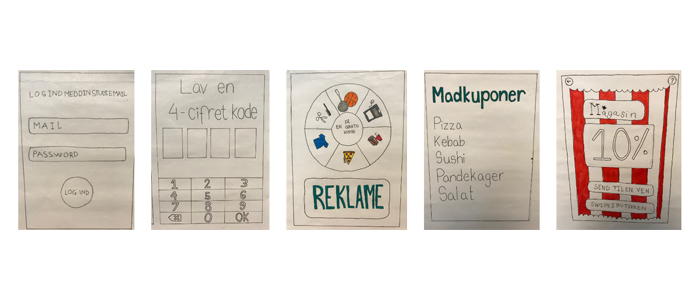 LOG IND MED DIN STUDIEMAIL
MAIL
PASSWORD
LOG IND
Lav en
4-cifret kode
1 2 3
4 5 6
7 8 9
0 OK
REKLAME
Madkuponer
Pizza
Kebab
Sushi
Pandekager
Salat
?
Magasin
10%
SEND TIL EN VEN
SWIPE I BUTIKKEN